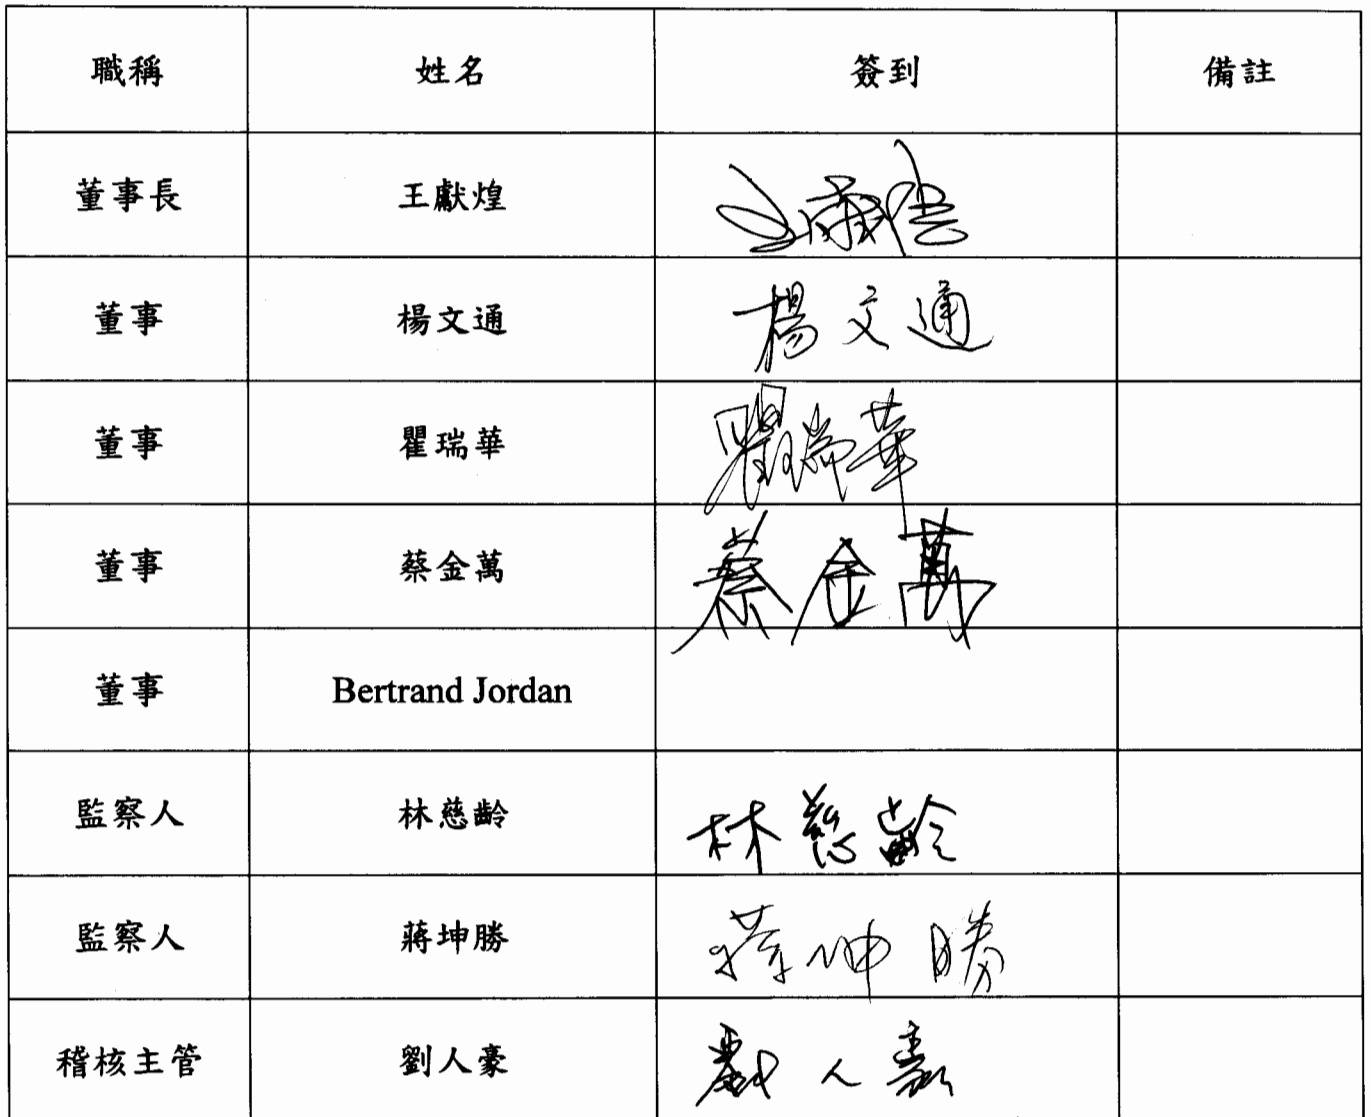 職稱 姓名 簽到 備註
董事長 王獻煌 王獻煌
董事 楊文通 楊文通
董事 瞿瑞華 瞿瑞華
董事 蔡金萬 蔡金萬
董事 Bertrand Jordan
監察人 林慈齡 林慈齡
監察人 蔣坤勝 蔣坤勝
稽核主管 劉人豪 劉人豪